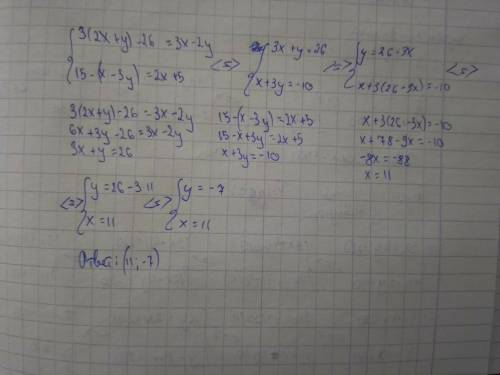 3(2x+y)-26=3x-2y
15-(x-3y)=2x+5
<=>
3x+y=26
x+3y=-10
<=>
y=26-3x
x+3(26-3x)=-10
<=>
3(2x+y)-26=3x-2y
6x+3y-26=3x-2y
3x+y=26
15-(x-3y)=2x+5
15-x+3y=2x+5
x+3y=-10
x+3(26-3x)=-10
x+78-9x=-10
-8x=-88
x=11
<=>
y=26-3·11
x=11
<=>
y=-7
x=11
Ответ: (11;-7)